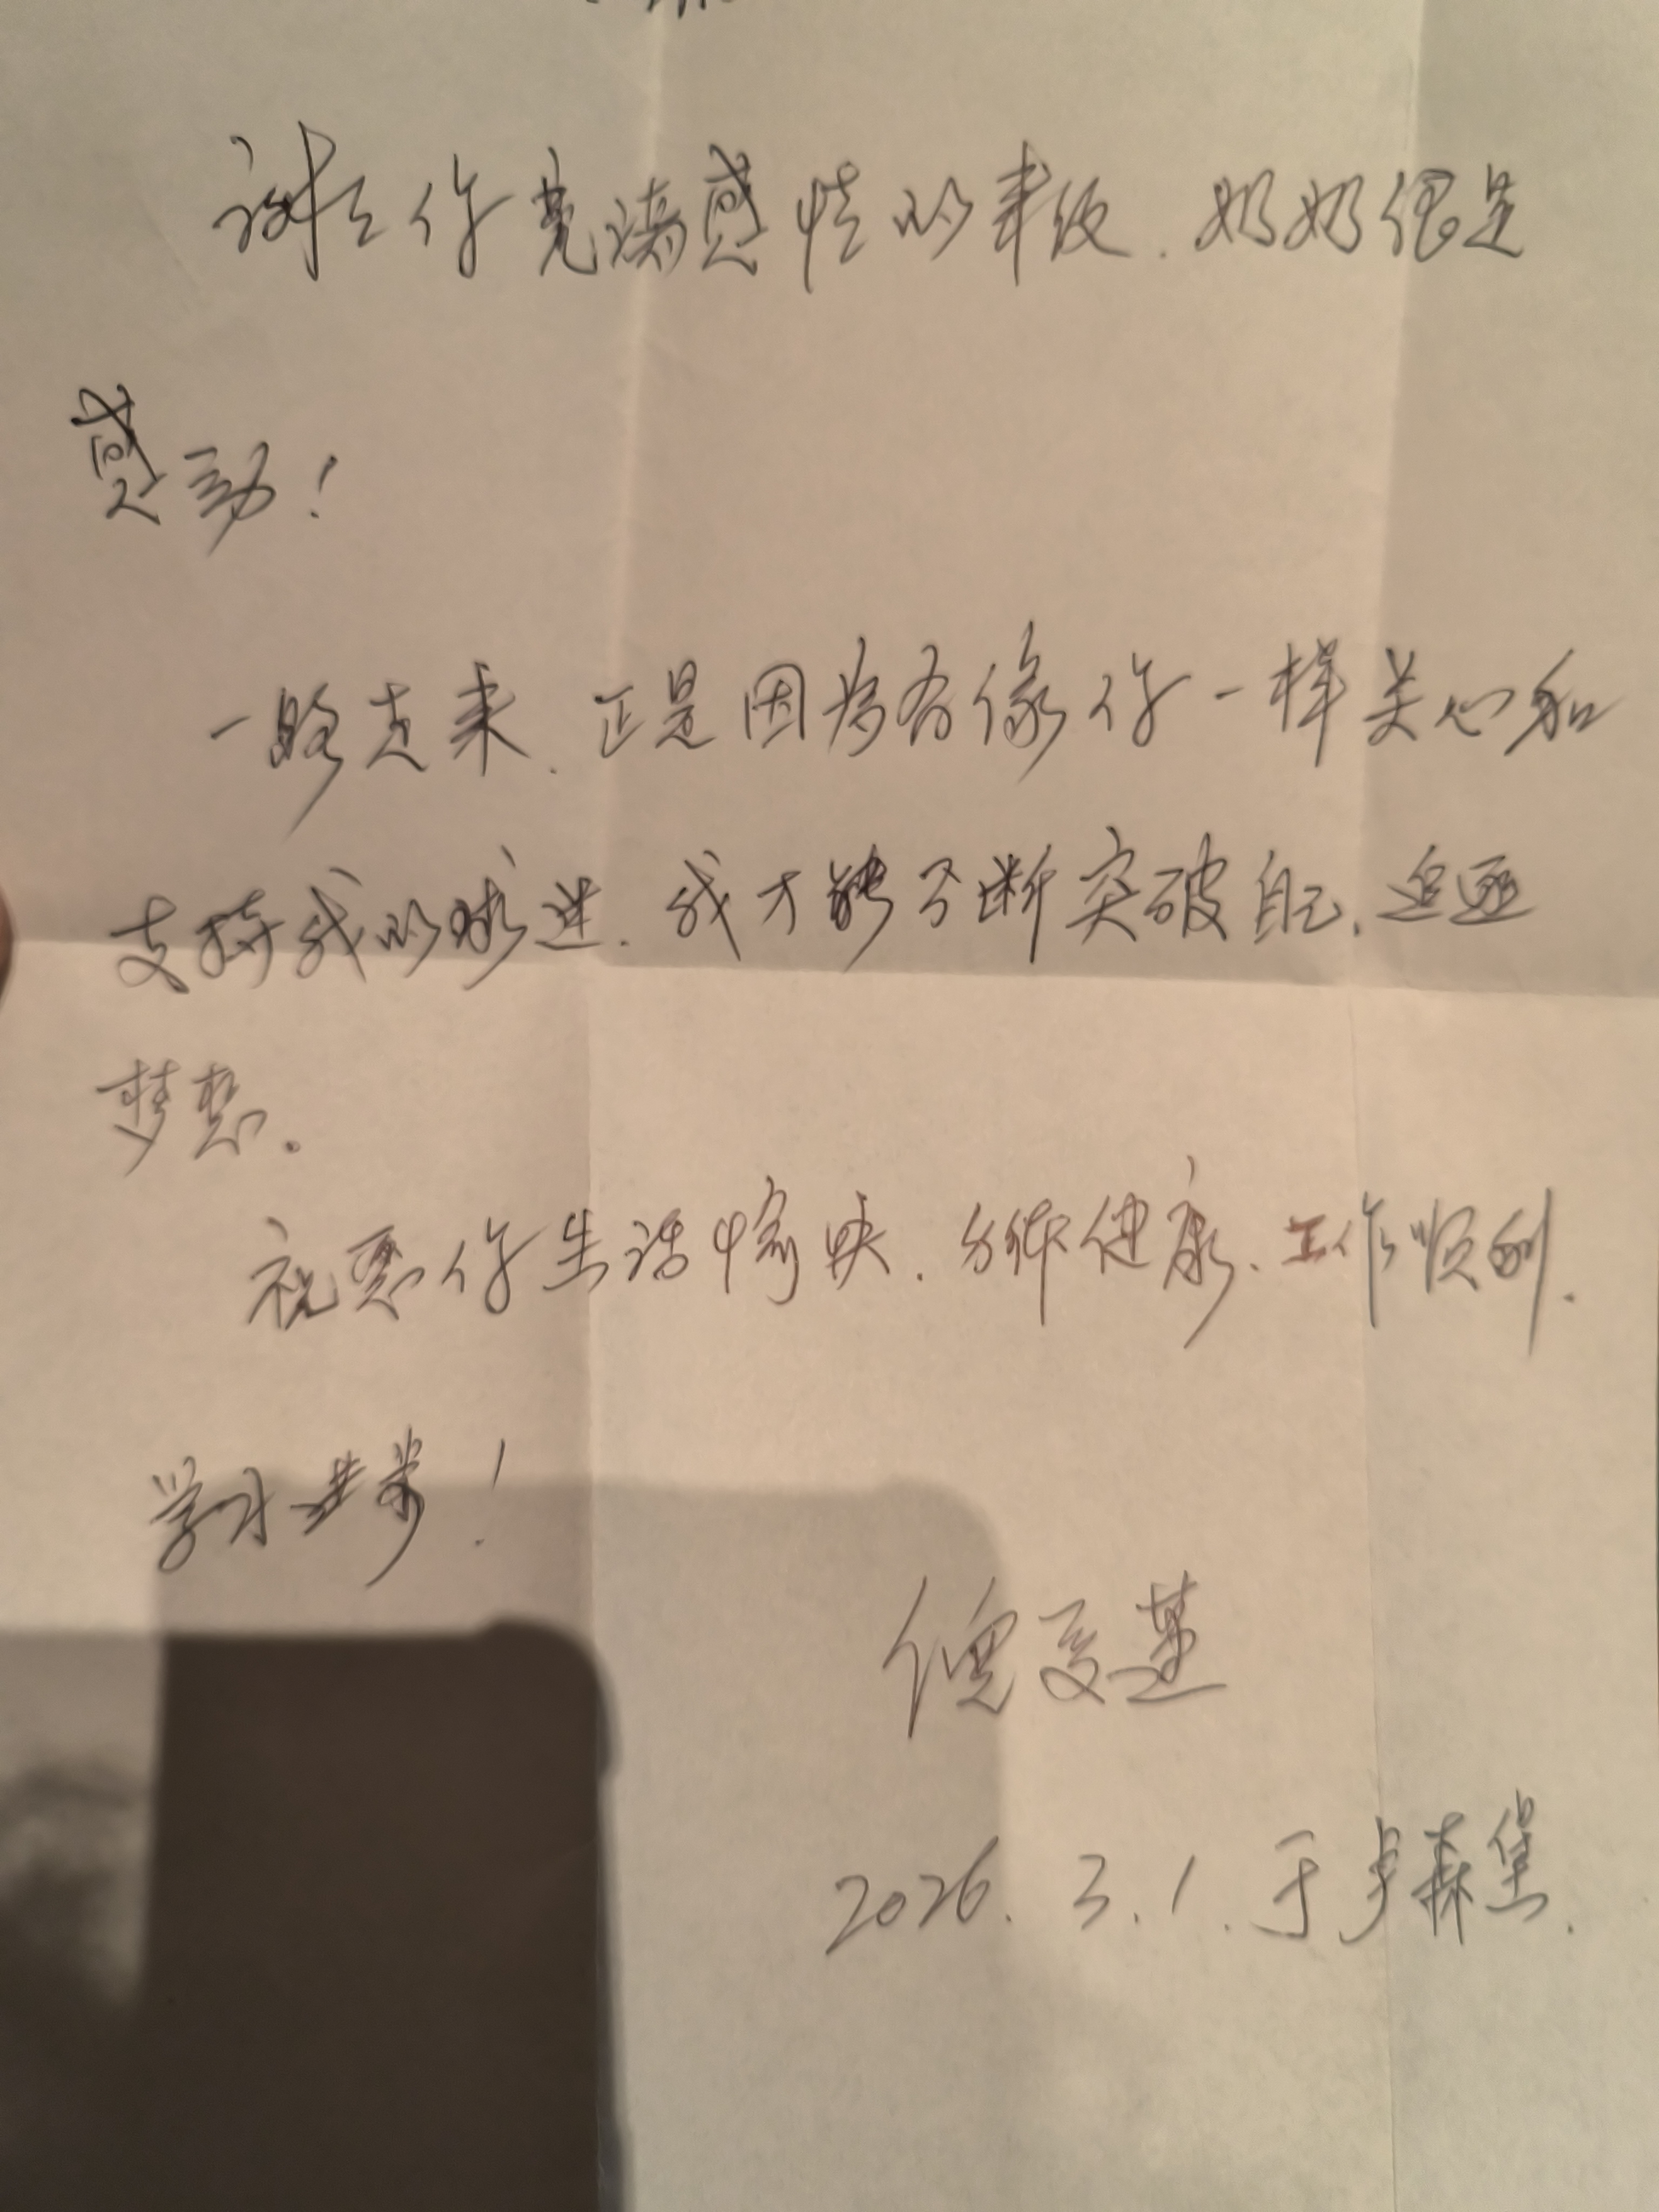 谢谢你充满感情的来信.奶奶很是
感动!
一路走来.正是因为有像你一样关心和
支持我的球迷.我才能不断突破自己.追逐
梦想.
祝愿你生活愉快.身体健康.工作顺利.
学习进步!
倪夏莲
2026.3.1.于卢森堡.